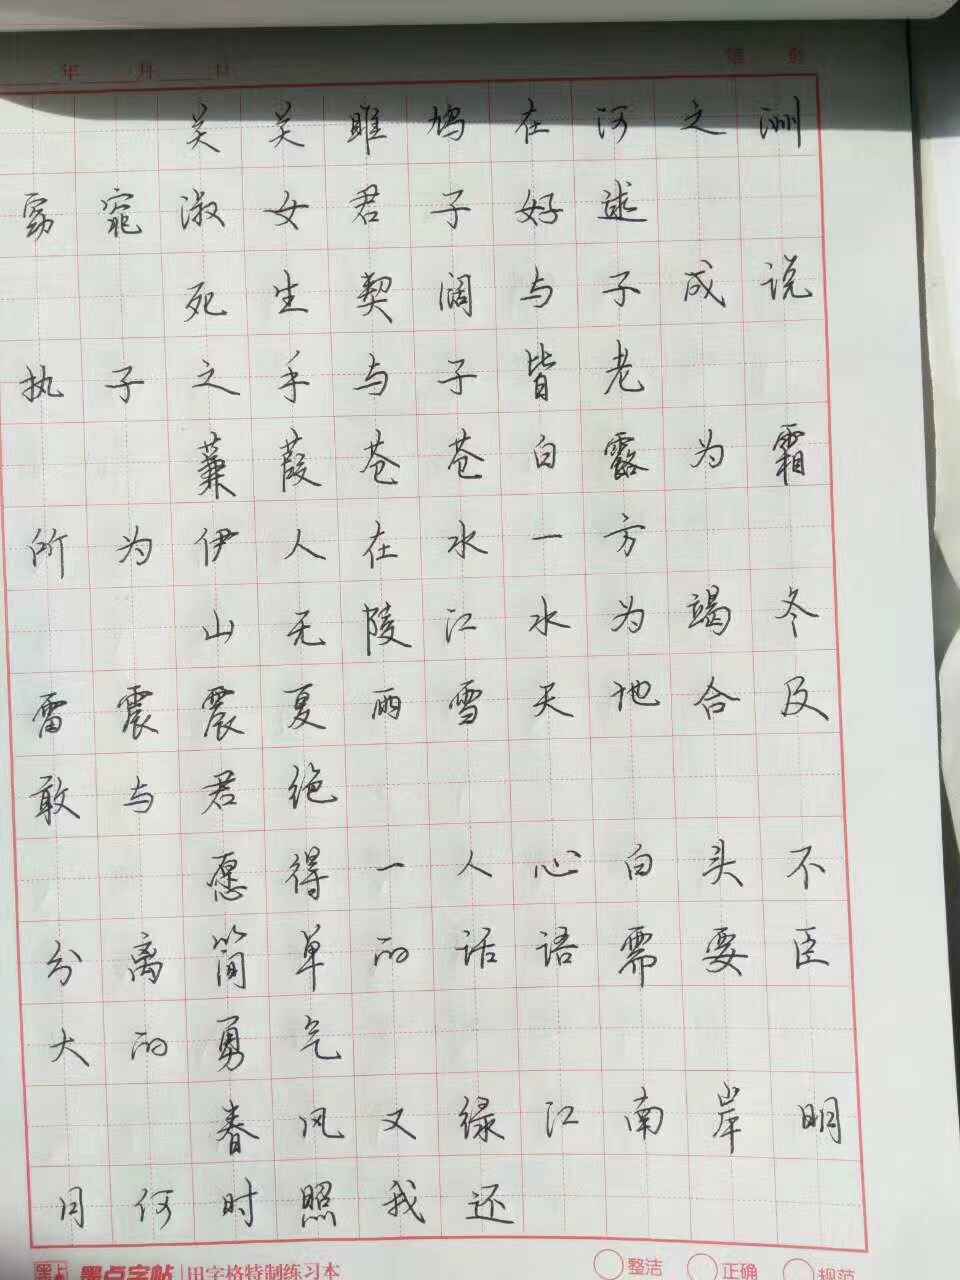 年 月 日
关关雎鸠在河之洲
窈窕淑女君子好逑
死生契阔与子成说
执子之手与子皆老
蒹葭苍苍白露为霜
所为伊人在水一方
山无陵江水为竭冬
雷震震夏雨雪天地合及
敢与君绝
愿得一人心白头不
分离简单的话语需要臣
大的勇气
春风又绿江南岸明
月何时照我还
墨点字帖 田字格特制练习本 整洁 正确 规范